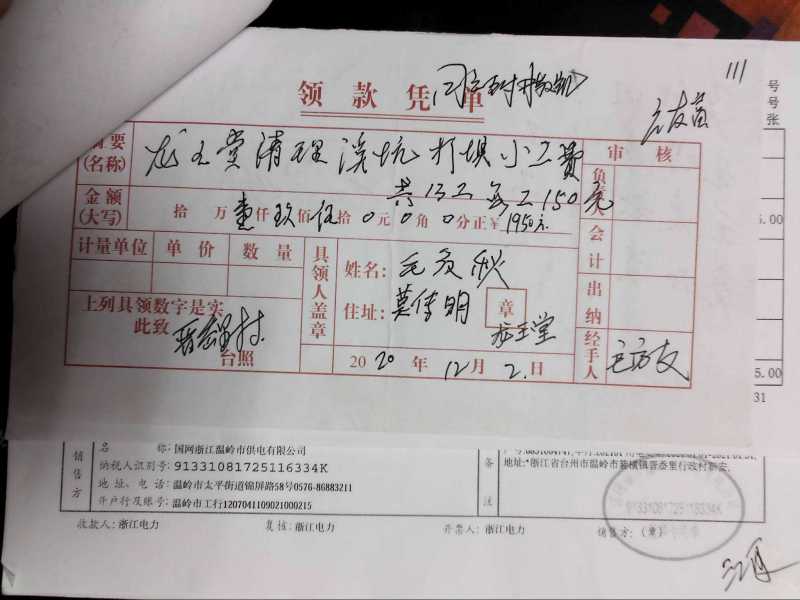 领款凭单
111
号
号
张
摘要
(名称)
龙王堂清理溪坑打坝小工费
共13工每工150元
审核
负责人
金额
(大写)
拾万壹仟玖佰伍拾0元0角0分正¥1950元
会计
计量单位 单价 数量
具领人盖章
姓名:
住址: 莫传明
章
龙王堂
出纳
上列具领数字是实
此致
台照
2020年12月2日
经手人
5.00
5.00
31
销售方
名 称: 国网浙江温岭市供电有限公司
纳税人识别号: 91331081725116334K
地址、电话: 温岭市太平街道锦屏路58号0576-86883211
开户行及账号: 温岭市工行1207041109021000215
备注
地址:*浙江省台州市温岭市箬横镇晋岙里行政村新安.
91331081725116334K
收款人: 浙江电力
复核: 浙江电力
开票人: 浙江电力
销售方: (章)